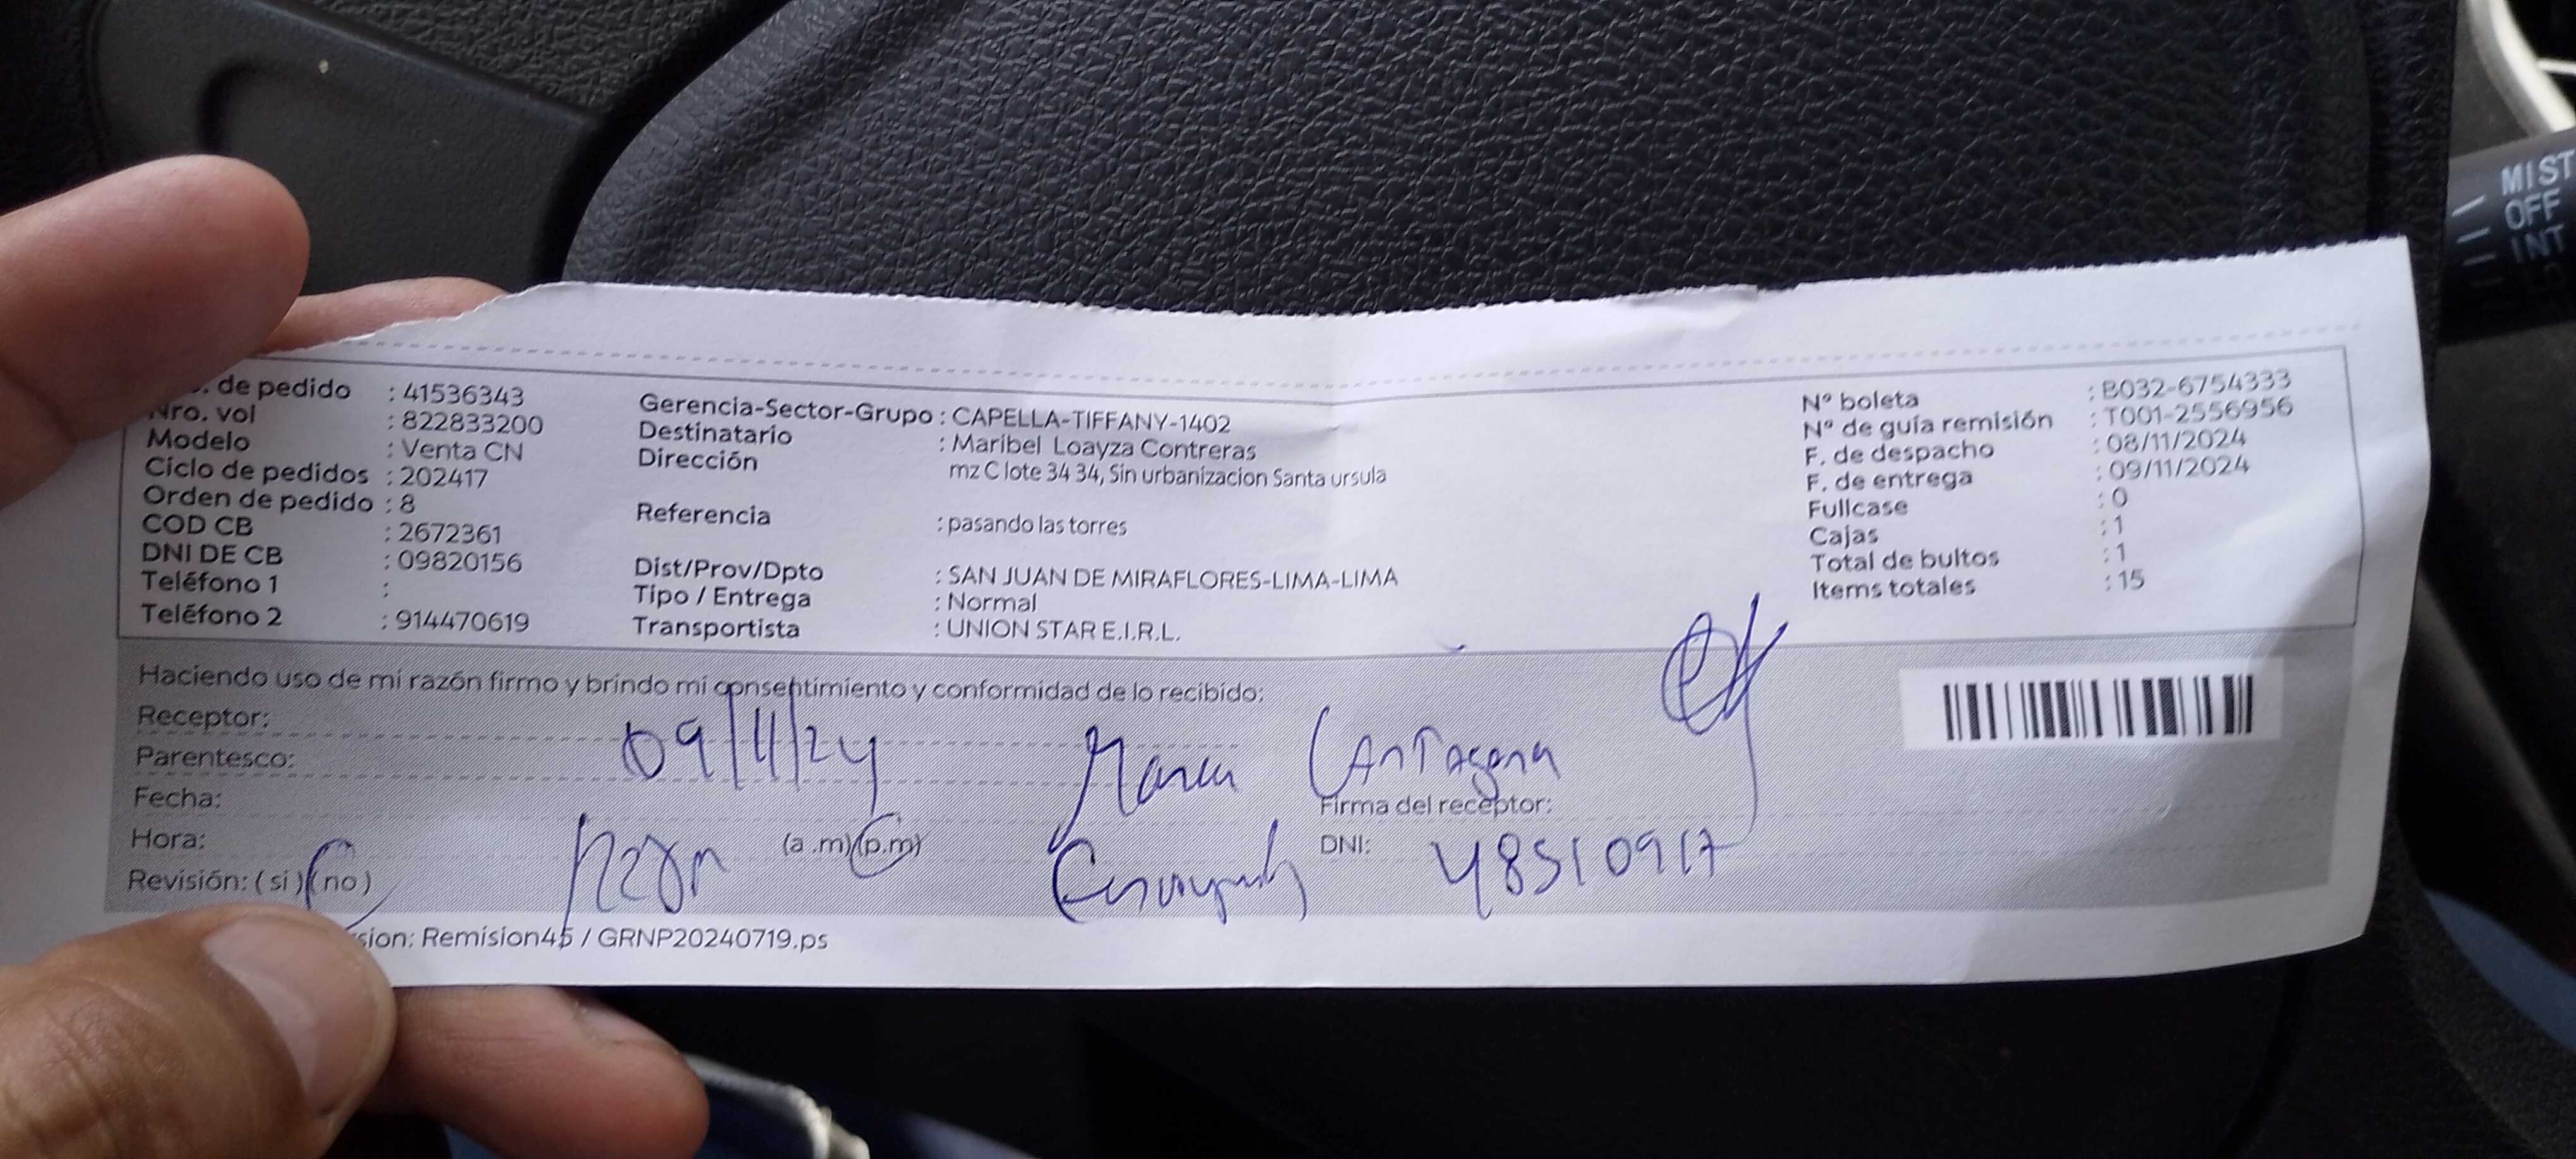 . de pedido : 41536343
Nro. vol : 822833200
Modelo : Venta CN
Ciclo de pedidos : 202417
Orden de pedido : 8
COD CB : 2672361
DNI DE CB : 09820156
Teléfono 1 :
Teléfono 2 : 914470619
Gerencia-Sector-Grupo : CAPELLA-TIFFANY-1402
Destinatario : Maribel Loayza Contreras
Dirección mz C lote 34 34, Sin urbanizacion Santa ursula
Referencia : pasando las torres
Dist/Prov/Dpto : SAN JUAN DE MIRAFLORES-LIMA-LIMA
Tipo / Entrega : Normal
Transportista : UNION STAR E.I.R.L.
Nº boleta : B032-6754333
Nº de guía remisión : T001-2556956
F. de despacho : 08/11/2024
F. de entrega : 09/11/2024
Fullcase : 0
Cajas : 1
Total de bultos : 1
Items totales : 15
Haciendo uso de mi razón firmo y brindo mi consentimiento y conformidad de lo recibido:
Receptor:
Parentesco:
09/11/24
Cantagena
Fecha:
Firma del receptor:
Hora: (a .m) (p.m)
DNI: 48510917
Revisión: ( si ) ( no )
sion: Remision45 / GRNP20240719.ps
MIST
OFF
INT